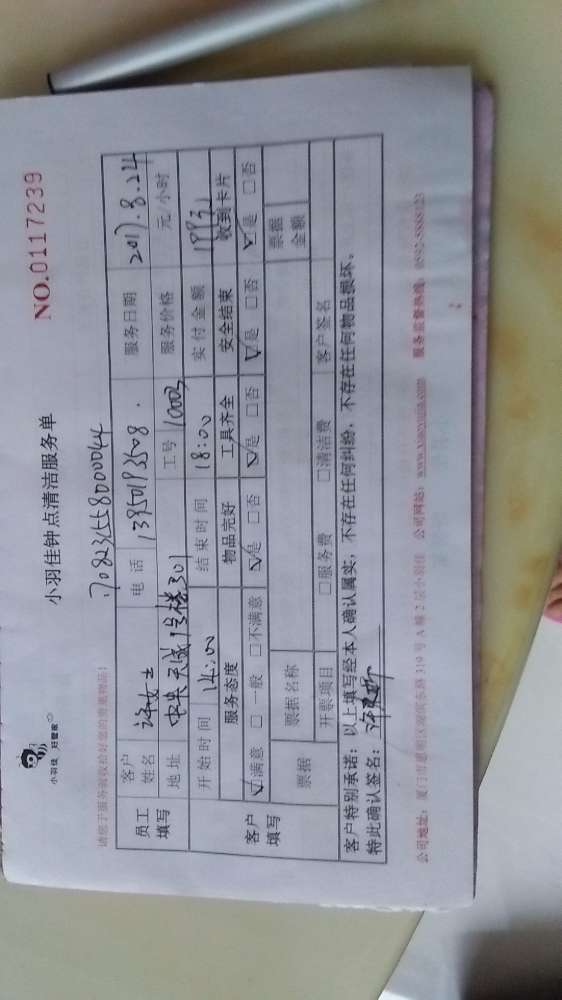 小羽佳 班智俊
小羽佳钟点清洁服务单
NO.0117239
请您于服务前收拾好您的贵重物品!
170823155800044
员工填写
客户姓名 许女士 电话 13950193508 服务日期 2017.8.24
地址 中央天成1号楼301 工号 10003 服务价格 元/小时
客户填写
开始时间 14:00 结束时间 18:00 实付金额
服务态度 物品完好 工具齐全 安全结束 收到卡片
☑满意 □一般 □不满意 ☑是 □否 ☑是 □否 ☑是 □否 ☑是 □否
票据 票据名称 票据金额
开票项目 □服务费 □清洁费 客户签名
客户特别承诺:以上填写经本人确认属实,不存在任何纠纷,不存在任何物品损坏。
特此确认签名:
公司地址:厦门市思明区湖滨东路319号A幢2层小羽佳 公司网站:www.xiaoyujia.com 服务监督热线:0592-5888723